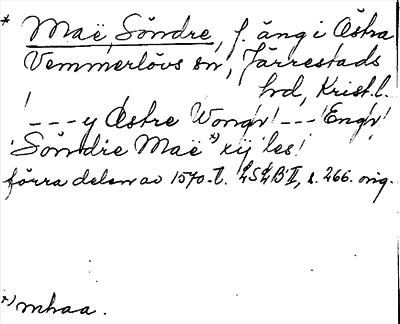 * Maë, Söndre, f. äng i Östra
Vemmerlövs sn, Järrestads
hd, Krist. l.
! - - - y Østre Wongh! - - - Engh!
Söndre Maë *) xij les!
förra delen av 1570-t. LSLB II, s. 266. orig.
*) mhaa.